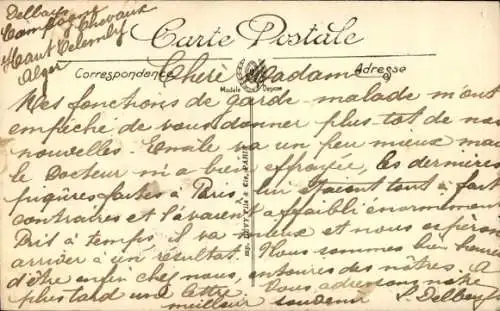 Delbays
Campagne Chevaux
Haut Telemly
Alger
Carte Postale
Correspondance
Adresse
Modèle Déposé
Chère Madame
Mes fonctions de garde-malade m'ont
empêché de vous donner plus tôt de nos
nouvelles. Emile va un peu mieux mais
le Docteur m'a bien effrayée, les dernières
piqûres faites à Paris lui étaient tout à fait
contraires et l'avaient affaibli énormément
Pris à temps, il va mieux et nous espérons
arriver à un résultat. Nous sommes bien heureux
d'être enfin chez nous, entourés des nôtres. A
plus tard une lettre. Vous adressons notre
meilleur souvenir
Imp. LEVY Fils & Cie, PARIS